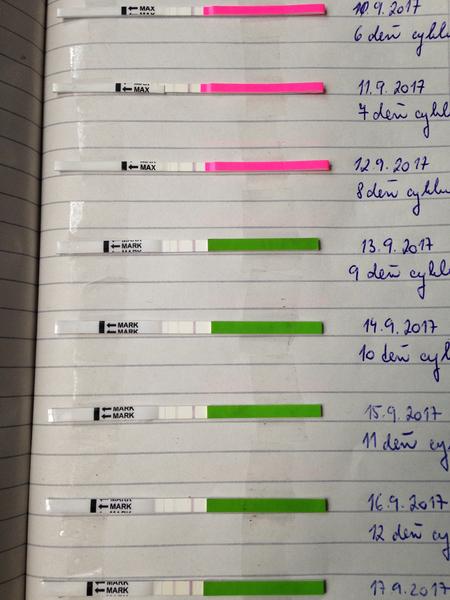 MAX
MAX
10.9.2017
6 deň cyklu
MAX
11.9.2017
7 deň
MAX
12.9.2017
8 deň cyklu
MARK
13.9.2017
9 deň
MARK
MARK
14.9.2017
10 deň
MARK
MARK
15.9.2017
11 deň
MARK
16.9.2017
12 deň
MARK
MARK
17.9.2017